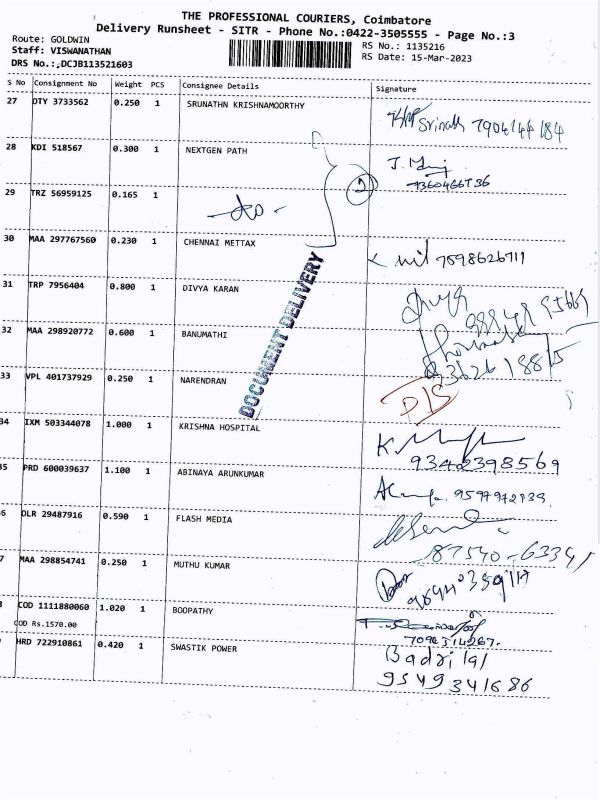 THE PROFESSIONAL COURIERS, Coimbatore
Delivery Runsheet - SITR - Phone No.:0422-3505555 - Page No.:3
Route: GOLDWIN
RS No.: 1135216
Staff: VISWANATHAN
RS Date: 15-Mar-2023
DRS No.:,DCJB113521603
S No Consignment No Weight PCS Consignee Details Signature
27 DTY 3733562 0.250 1 SRUNATHN KRISHNAMOORTHY Srinath 7904144184
28 KDI 518567 0.300 1 NEXTGEN PATH J.
29 TRZ 56959125 0.165 1 -do-
30 MAA 297767560 0.230 1 CHENNAI METTAX 7598626711
31 TRP 7956404 0.800 1 DIVYA KARAN Divya
32 MAA 298920772 0.600 1 BANUMATHI
DOCUMENT DELIVERY
33 VPL 401737929 0.250 1 NARENDRAN D/S
34 IXM 503344078 1.000 1 KRISHNA HOSPITAL
9342398569
35 PRD 600039637 1.100 1 ABINAYA ARUNKUMAR
6 DLR 29487916 0.590 1 FLASH MEDIA
87540-63341
7 MAA 298854741 0.250 1 MUTHU KUMAR
COD 1111880060 1.020 1 BOOPATHY
COD Rs.1570.00
7094314267.
HRD 722910861 0.420 1 SWASTIK POWER Badrilal
9549341686